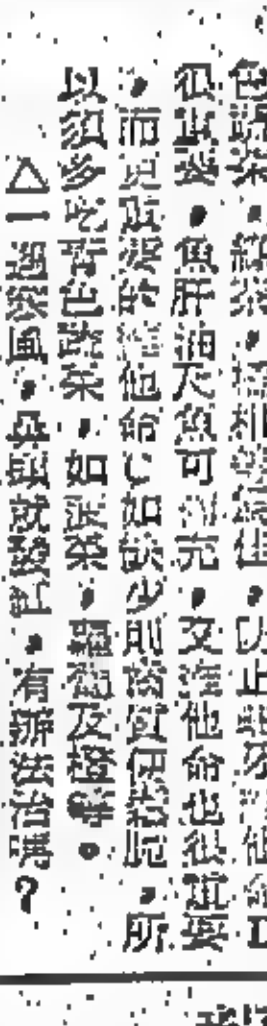 色蔬菜，綠菜，柑桔等爲佳，防止蛀牙維他命D
很重要，魚肝油及魚可補充，艾維他命也很重要
，而更重要的維他命C如缺少則齒質便變脆，所
以須多吃青色蔬菜，如菠菜，蘿蔔及橙等。
△一遇寒風，鼻頭就發紅，有辦法治嗎？